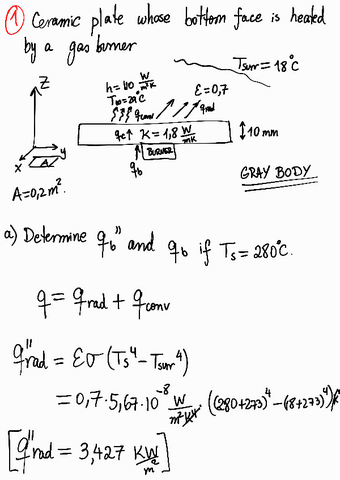 ① Ceramic plate whose bottom face is heated
by a gas burner
Tsurr = 18°C
h = 110 W/m²K
T∞ = 20°C
qconv
qrad
ε = 0,7
Z
qc↑ K = 1,8 W/mK
10 mm
BURNER
qb
X
y
A
A = 0,2 m².
GRAY BODY
a) Determine qb" and qb if Ts = 280°C.
q = qrad + qconv
q"rad = εσ (Ts⁴ - Tsurr⁴)
= 0,7 · 5,67 · 10⁻⁸ W/m²K⁴ ((280+273)⁴ - (18+273)⁴) K⁴
[q"rad = 3,427 KW/m²]